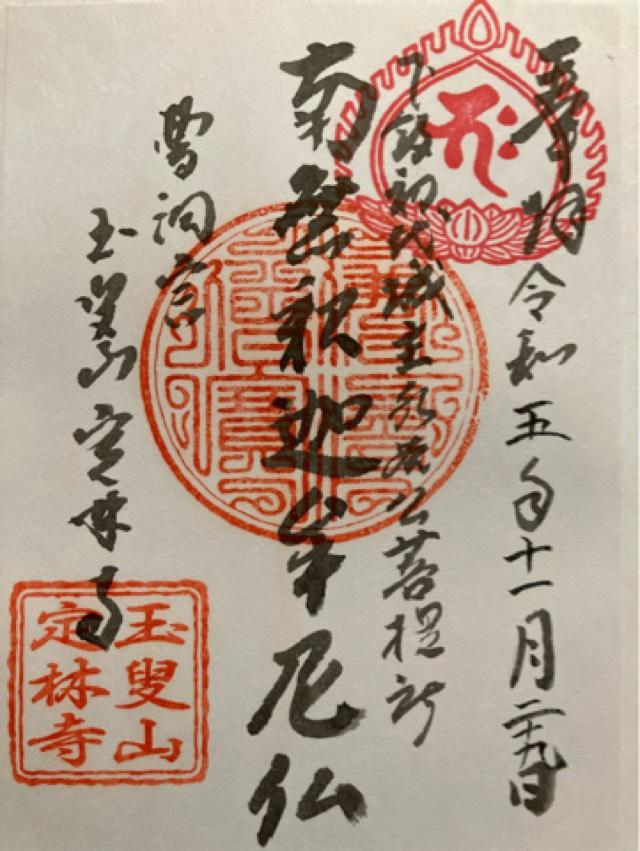 奉拝 令和五年十一月二十九日
下館初代城主水谷公菩提所
南無釈迦牟尼仏
曹洞宗
玉叟山定林寺
玉叟山
定林寺